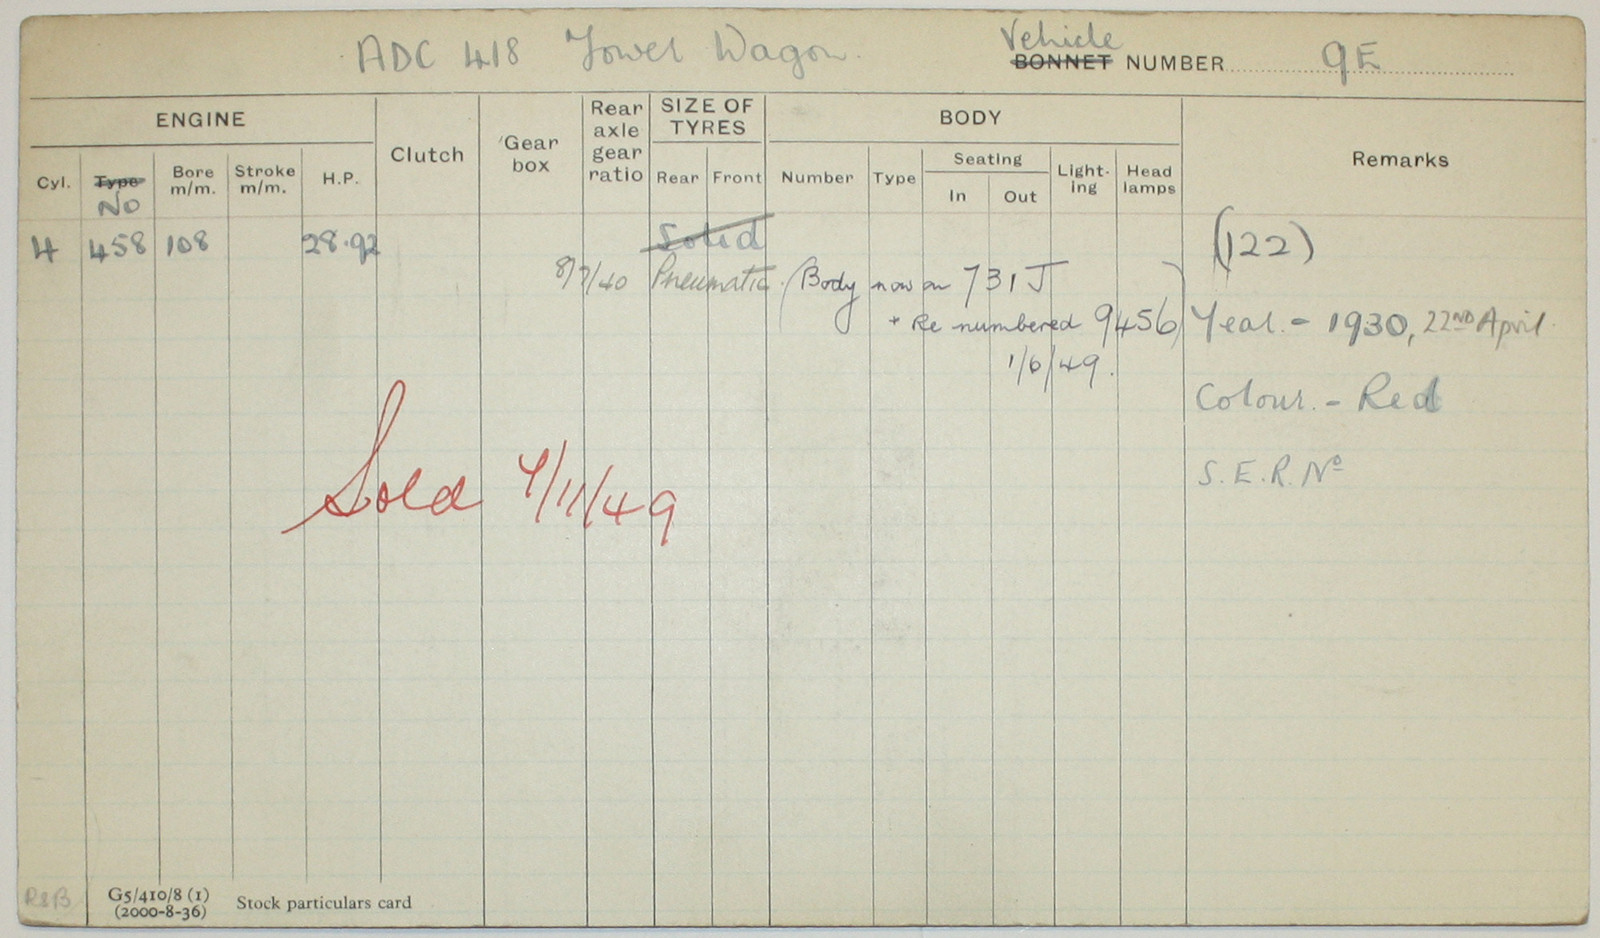 Vehicle
ADC 418 Tower Wagon. BONNET NUMBER 9E
ENGINE
Clutch
Gear box
Rear axle gear ratio
SIZE OF TYRES
BODY
Remarks
Cyl. Type Bore m/m. Stroke m/m. H.P.
Rear Front
Number Type Seating Lighting Head lamps
In Out
No
4 458 108 28.92 Solid (122)
8/7/40 Pneumatic. (Body now on 731J
+ Re numbered 9456) Year. - 1930, 22ND April.
1/6/49.
Colour. - Red
S.E.R. No
Sold 4/11/49
R&B
G5/410/8 (1)
(2000-8-36)
Stock particulars card